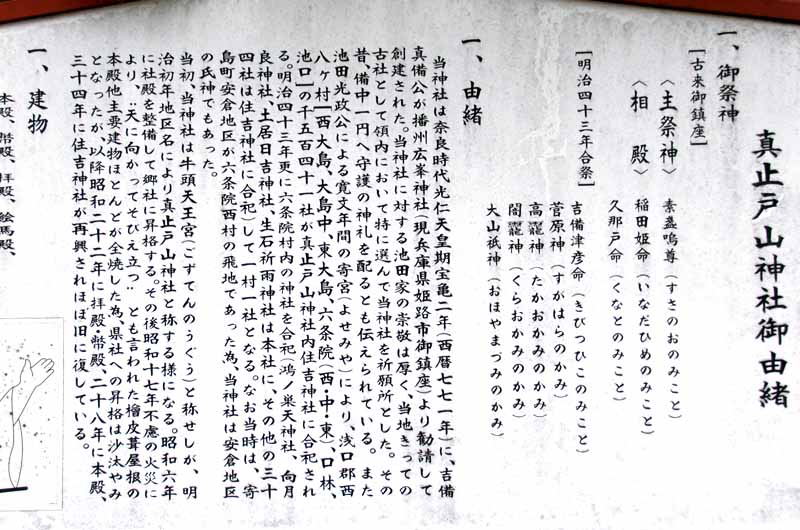 真止戸山神社御由緒
一、御祭神
[古来御鎮座]
〈主祭神〉 素盞嗚尊(すさのおのみこと)
〈相 殿〉 稲田姫命(いなだひめのみこと)
久那戸命(くなとのみこと)
[明治四十三年合祭]
吉備津彦命(きびつひこのみこと)
菅原神(すがはらのかみ)
高龗神(たかおかみのかみ)
闇龗神(くらおかみのかみ)
大山祇神(おほやまづみのかみ)
一、由緒
当神社は奈良時代光仁天皇期宝亀二年(西暦七七一年)に、吉備
真備公が播州広峯神社(現兵庫県姫路市御鎮座)より勧請して
創建された。当神社に対する池田家の崇敬は厚く、当地きっての
古社として領内において特に選んで当神社を祈願所とした。その
昔、備中一円へ守護の神札を配るとも伝えられている。また
池田光政公による寛文年間の寄宮(よせみや)により、浅口郡西
八ヶ村[西大島、大島中、東大島、六条院(西・中・東)、口林、
池口]の千五百四十一社が真止戸山神社内住吉神社に合祀され
る。明治四十三年更に六条院村内の神社を合祀(鴻ノ巣天神社、向月
良神社、土居日吉神社、生石祈雨神社は本社に、その他の三十
四社は住吉神社に合祀)して一村一社となる。なお当時は、寄
島町安倉地区が六条院西村の飛地であった為、当神社は安倉地区
の氏神でもあった。
当初、当神社は牛頭天王宮(ごずてんのうぐう)と称せしが、明
治初年地区名により真止戸山神社と称する様になる。昭和六年
に社殿を整備して郷社に昇格する。その後昭和十七年不慮の火災に
より、‥天に向かってそびえ立つ‥とも言われた檜皮葺屋根の
本殿他主要建物ほとんどが全焼した為、県社への昇格は沙汰やみ
となったが以降昭和二十二年に拝殿・幣殿、二十八年に本殿、
三十四年に住吉神社が再興されほぼ旧に復している。
一、建物
本殿、幣殿、拝殿、絵馬殿、